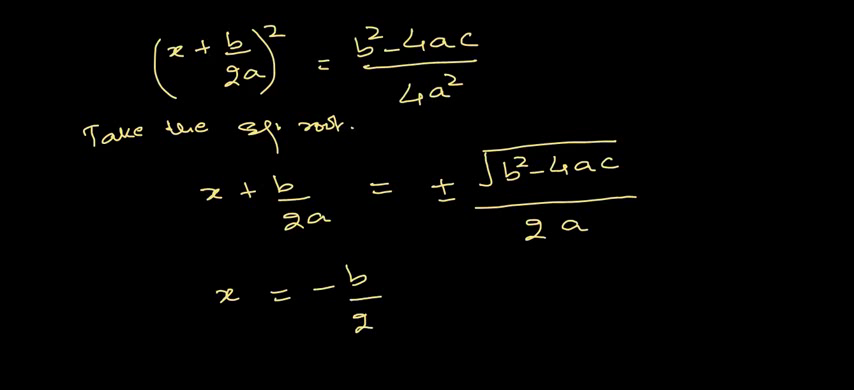 (x + b/2a)² = b² - 4ac / 4a²
Take the sq. root.
x + b/2a = ± √(b² - 4ac) / 2a
x = - b/2